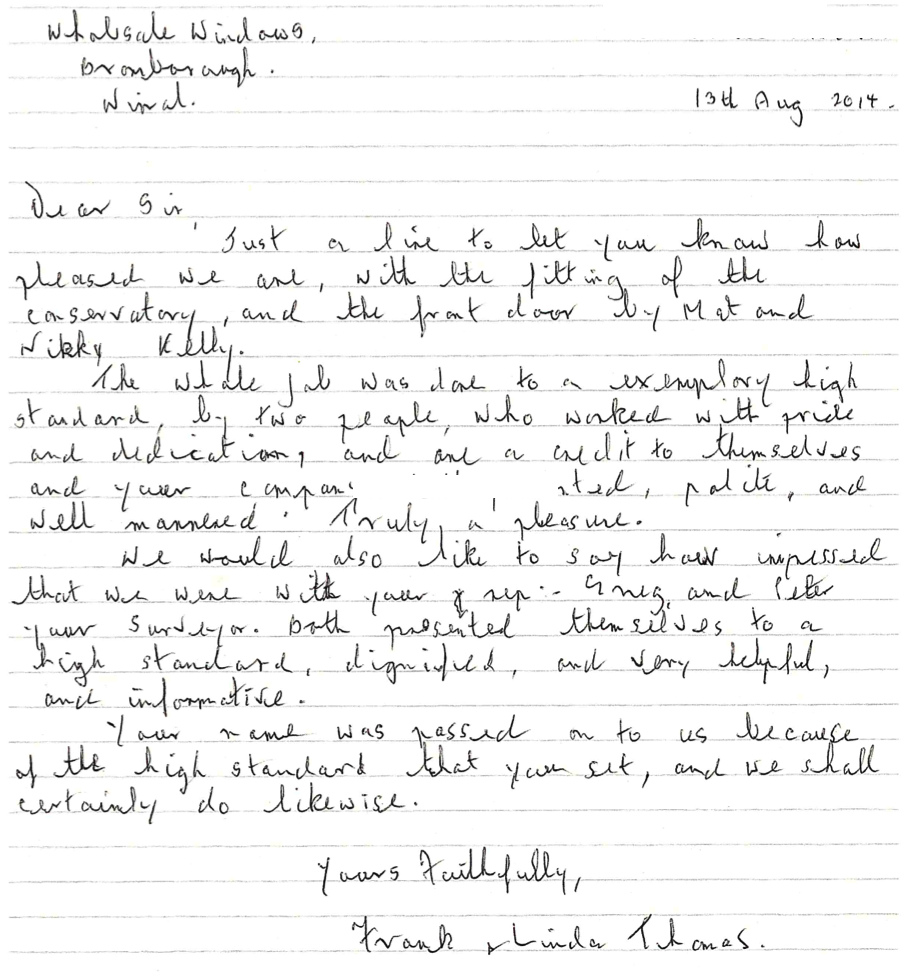 Wholesale Windows,
Bromborough.
Wirral.
13th Aug 2014.
Dear Sir,
Just a line to let you know how
pleased we are, with the fitting of the
conservatory, and the front door by Mat and
Nikky Kelly.
The whole job was done to a exemplory high
standard, by two people, who worked with pride
and dedication, and are a credit to themselves
and your polite, and
well mannered. Truly, a pleasure.
We would also like to say how impressed
that we were with your rep:- Greg, and Peter
your surveyor. Both presented themselves to a
high standard, dignified, and very helpful,
and informative.
Your name was passed on to us because
of the high standard that you set, and we shall
certainly do likewise.
Yours Faithfully,
Frank & Linda Thomas.